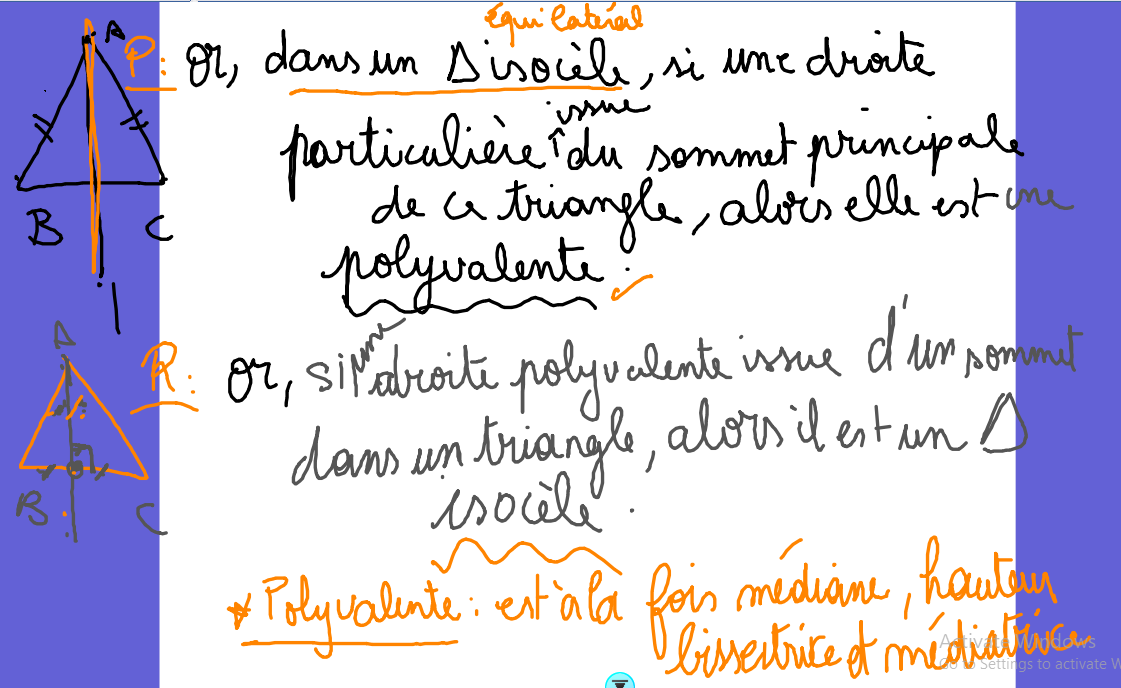 équilatéral
A
P: Or, dans un Δ isocèle, si une droite
issue
particulière du sommet principale
de ce triangle, alors elle est une
B C
polyvalente.
A
une
R: Or, si droite polyvalente issue d'un sommet
dans un triangle, alors il est un Δ
B C
isocèle.
* Polyvalente: est à la fois médiane, hauteur
bissectrice et médiatrice
Activate Windows
Go to Settings to activate W